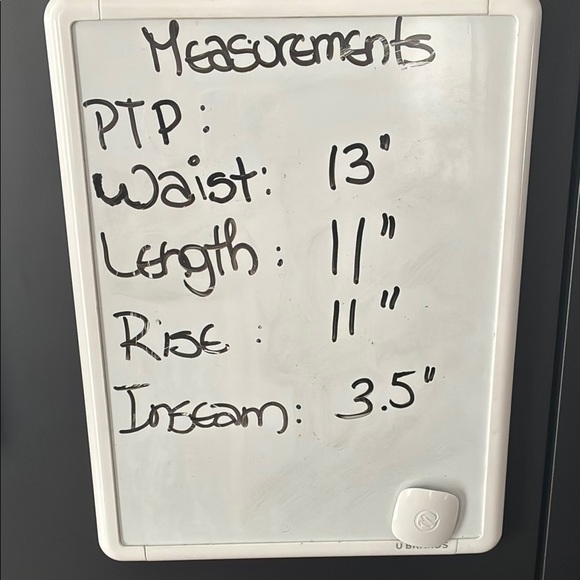 Measurements
PTP:
Waist: 13"
Length: 11"
Rise: 11"
Inseam: 3.5"
U BRANDS